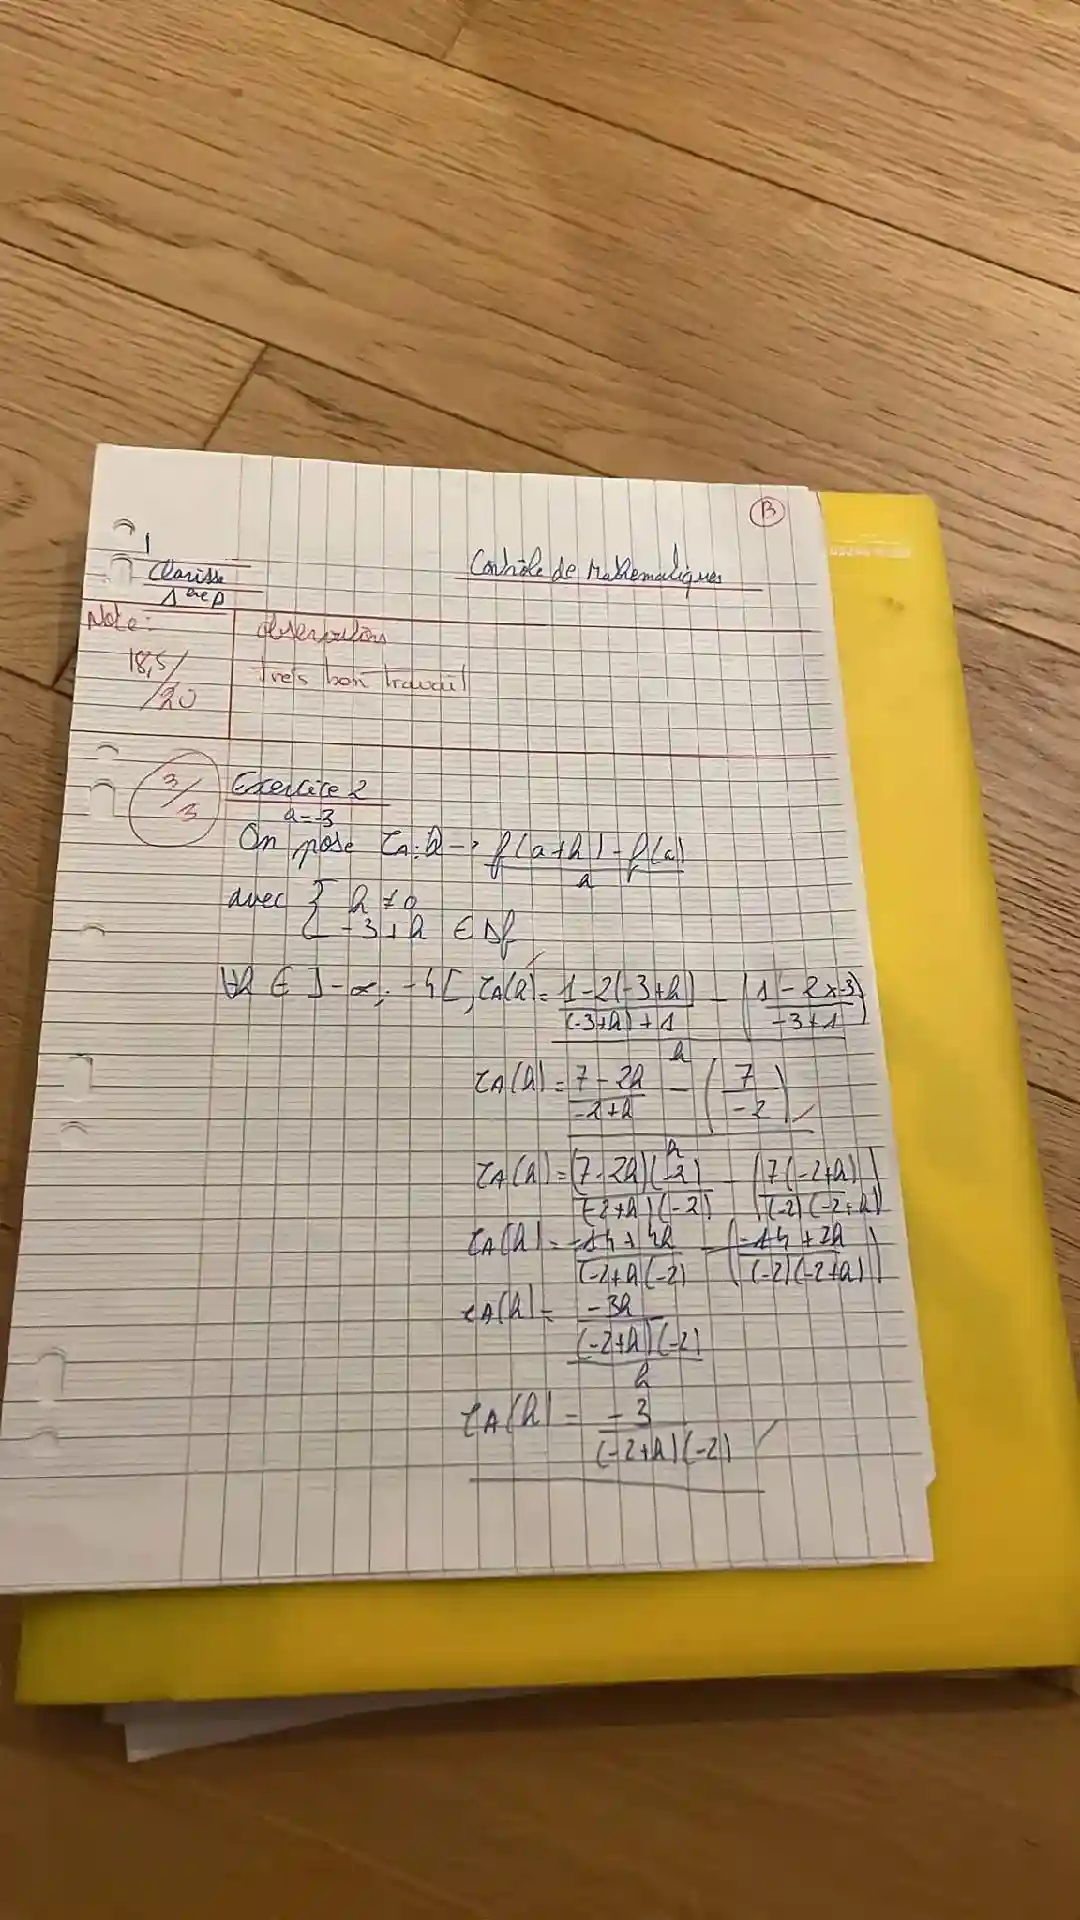 B
1
Clarisse
Contrôle de Mathématiques
1ère D
Note:
observations
18,5/
/20
Très bon travail
3/3
Exercice 2
a=-3
On pose τA: h → f(a+h)-f(a) / h
avec { h ≠ 0
-3+h ∈ Df
∀h ∈ ]-∞; -4[, τA(h) = (1-2(-3+h) / (-3+h)+1 - (1-2×-3 / -3+1)) / h
τA(h) = (7-2h / -2+h - (7 / -2)) / h
τA(h) = (7-2h)(-2) / (-2+h)(-2) - (7(-2+h) / (-2)(-2+h))
τA(h) = -14+4h / (-2+h(-2) - (-14+7h / (-2)(-2+h))
τA(h) = (-3h / (-2+h)(-2)) / h
τA(h) = -3 / (-2+h)(-2)